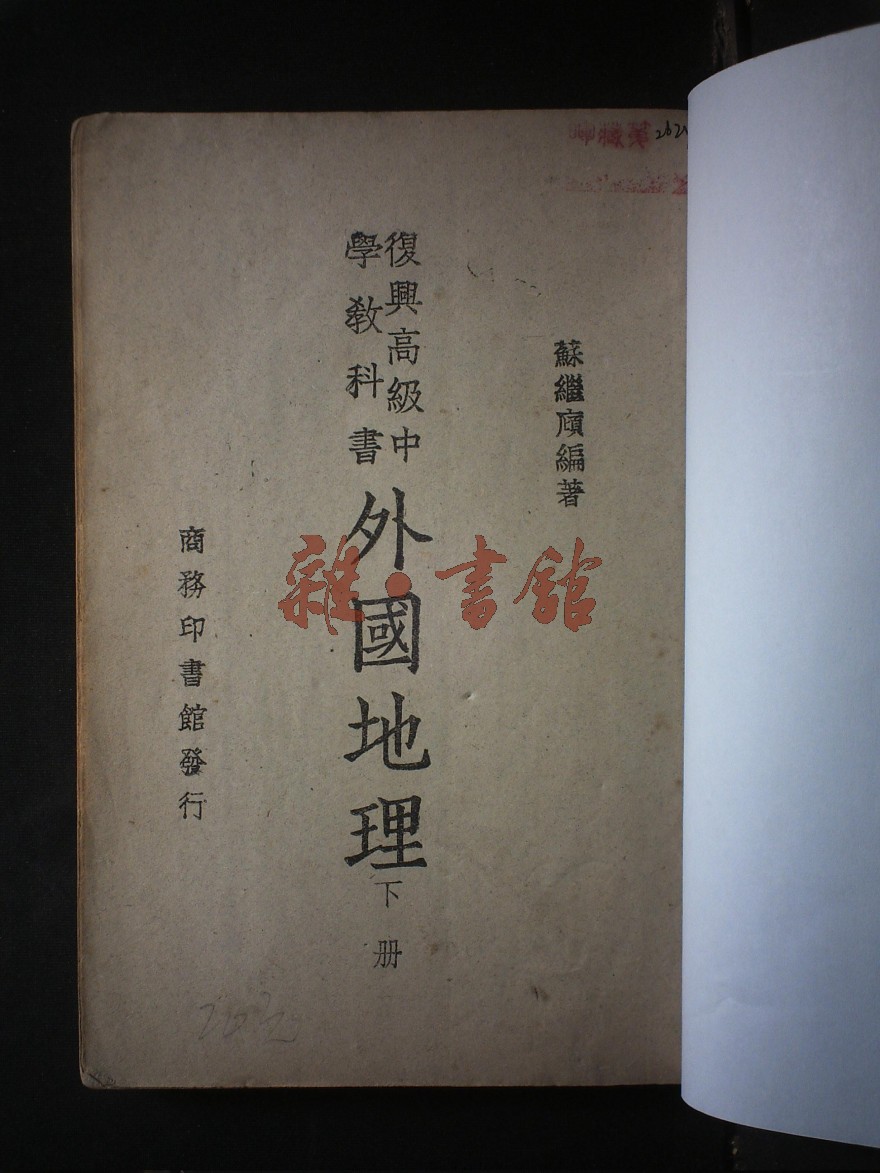 蘇繼廎編著
復興高級中
學教科書
外國地理
下册
商務印書館發行
雜·書館